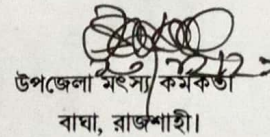 উপজেলা মৎস্য কর্মকর্তা
বাঘা, রাজশাহী।